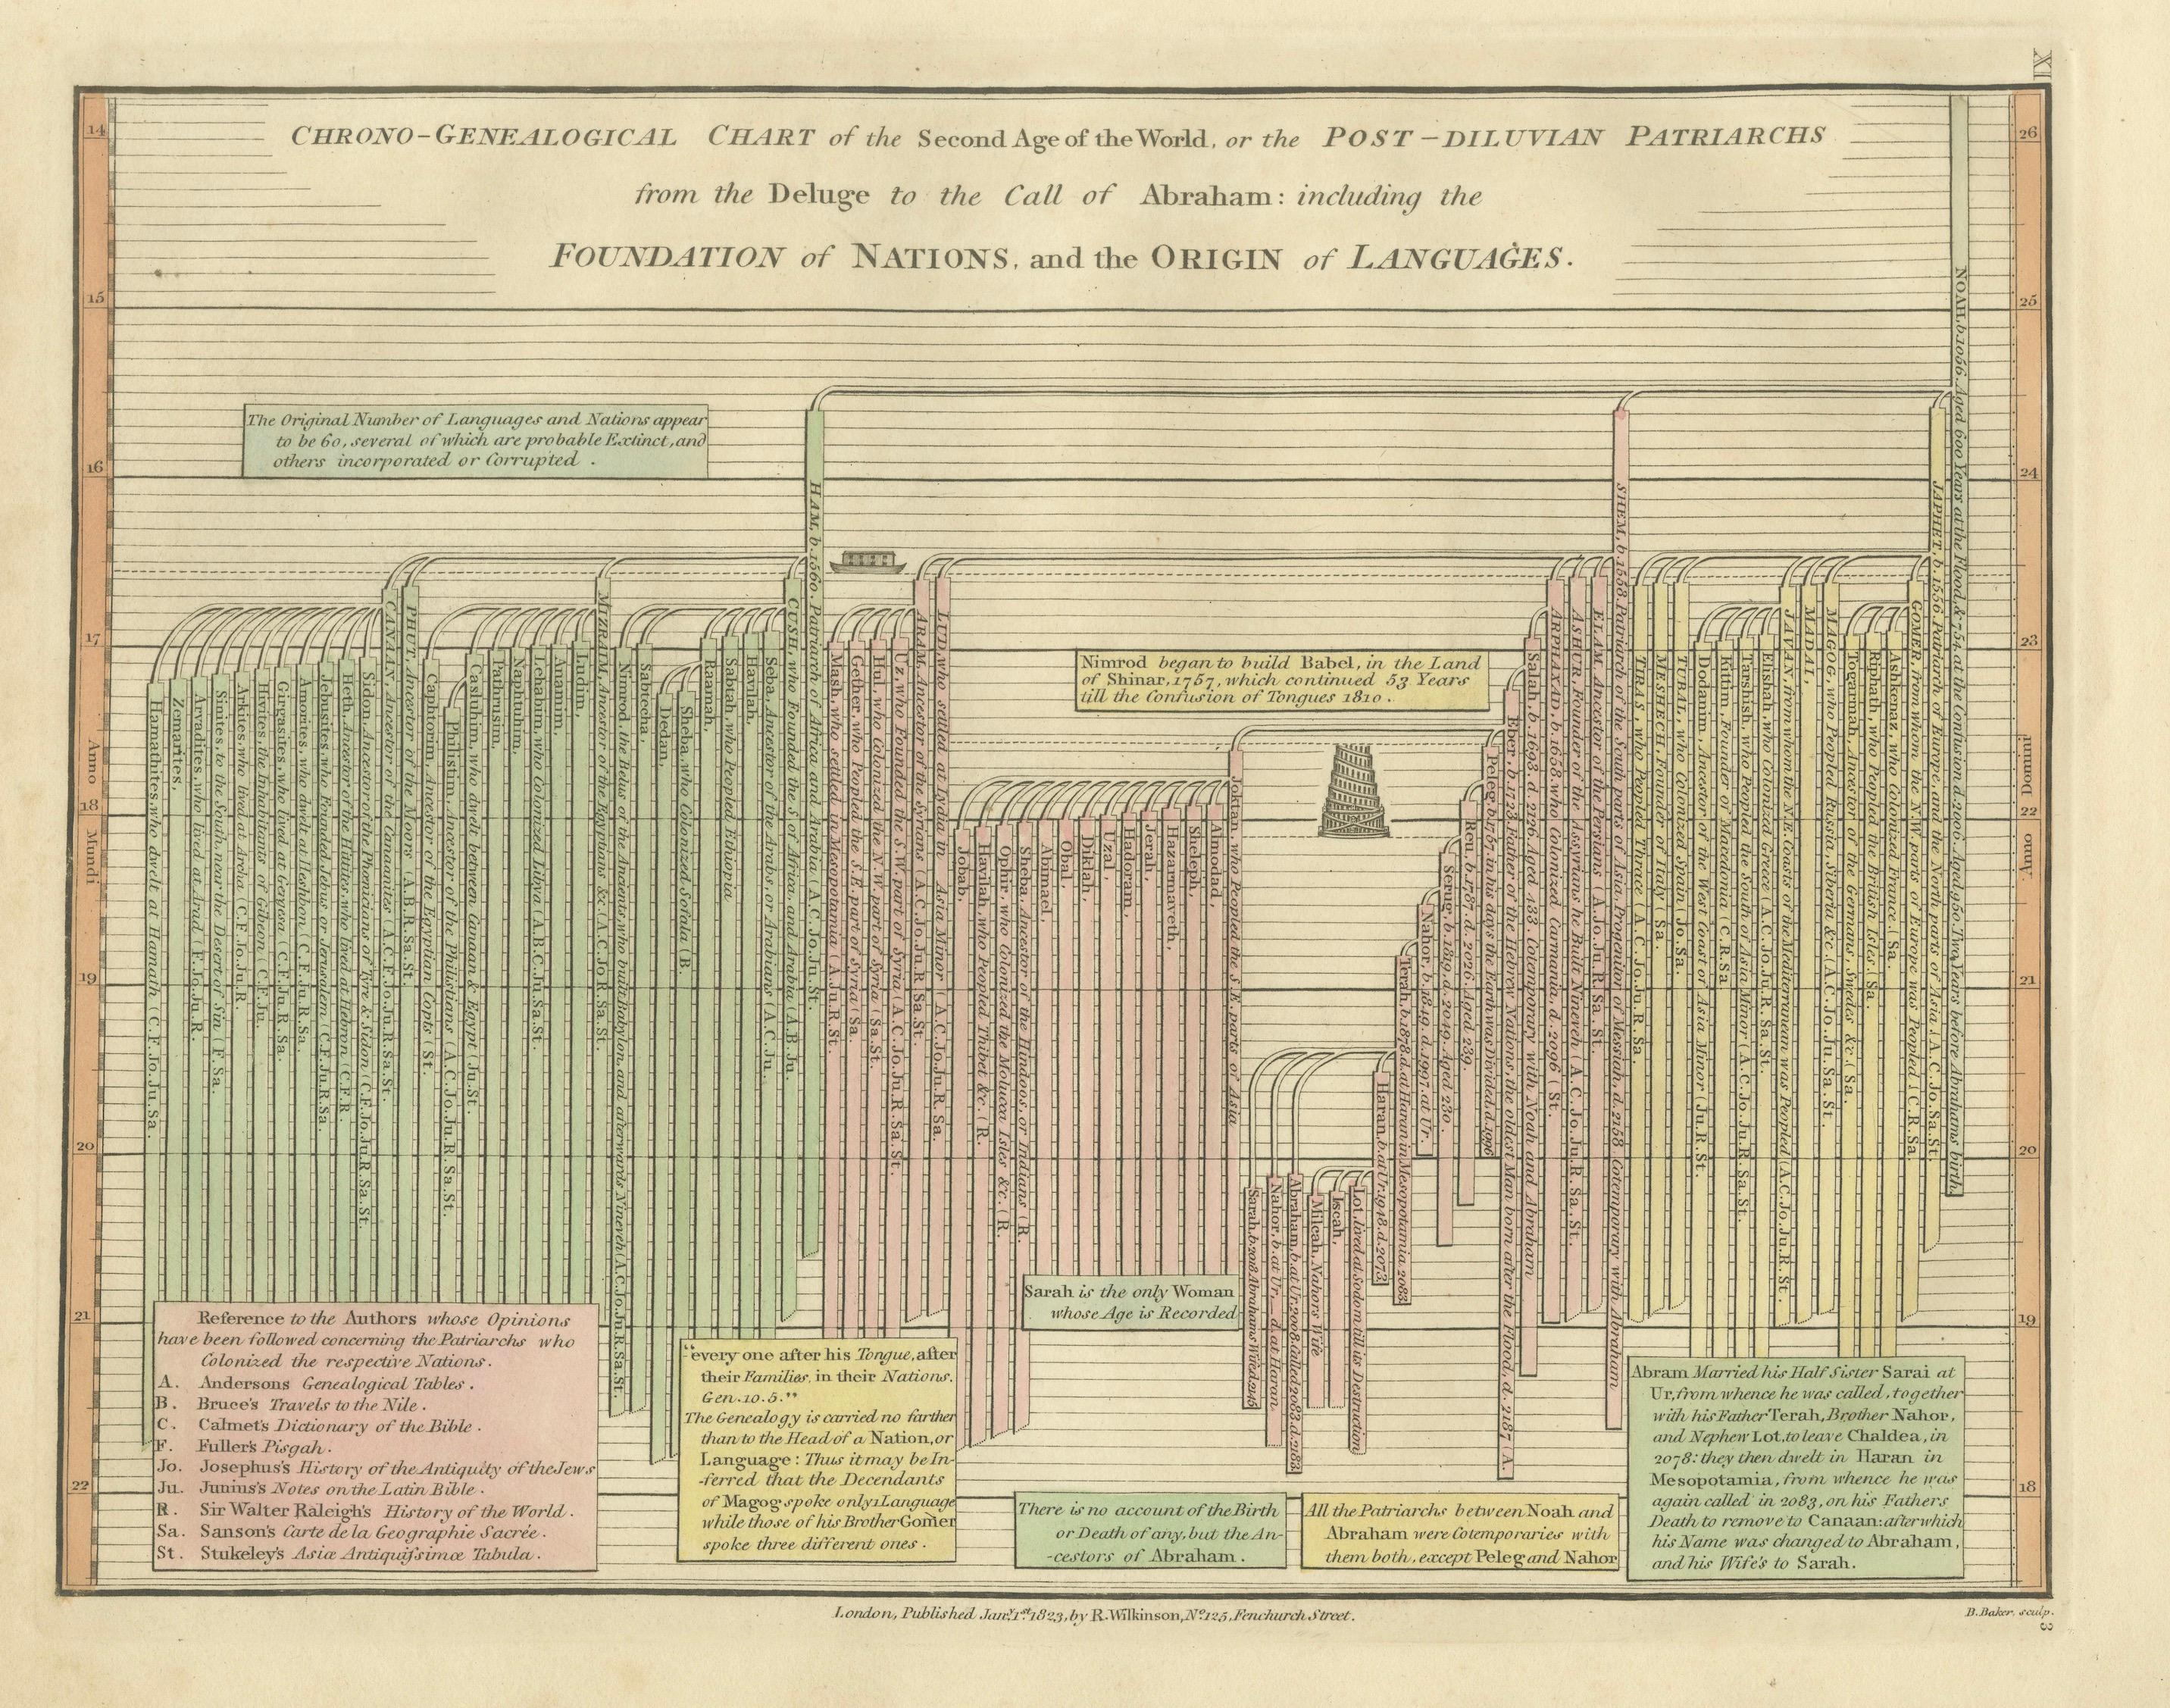 XI
CHRONO-GENEALOGICAL CHART of the Second Age of the World, or the POST-DILUVIAN PATRIARCHS
from the Deluge to the Call of Abraham: including the
FOUNDATION of NATIONS, and the ORIGIN of LANGUAGES.
14
15
16
17
Anno
18
Mundi
19
20
21
22
26
25
24
23
Domini
22
Anno
21
20
19
18
The Original Number of Languages and Nations appear
to be 60, several of which are probable Extinct, and
others incorporated or Corrupted.
Nimrod began to build Babel, in the Land
of Shinar, 1757, which continued 53 Years
till the Confusion of Tongues 1810.
Hamathites, who dwelt at Hamath (C.F.Jo.Ju.Sa.
Zemarites,
Arvadites, who lived at Arad (F.Jo.Ju.R.
Sinites, to the South, near the Desert of Sin (F.Sa.
Arkites, who lived at Archa (C.F.Jo.Ju.R.
Hivites, the Inhabitants of Gibeon (C.F.Ju.
Girgasites, who lived at Gergesa (C.F.Ju.R.Sa.
Amorites, who dwelt at Heshbon (C.F.Ju.R.Sa.
Jebusites, who Founded Jebus or Jerusalem (C.F.Ju.R.Sa.
Heth, Ancestor of the Hittites, who lived at Hebron (C.F.R.
Sidon, Ancestor of the Phenicians or Tyre & Sidon (C.F.Jo.Ju.R.Sa.St.
CANAAN, Ancestor of the Canaanites A.C.F.Jo.Ju.R.Sa.St.
PHUT, Ancestor of the Moors (A.B.R.Sa.St.
Caphtorim, Ancestor of the Egyptian Copts (St.
Philistim, Ancestor of the Philistians (A.C.Jo.Ju.R.Sa.St.
Casluhim, who dwelt between Canaan & Egypt (Ju.St.
Pathrusim,
Naphtuhim,
Lehabim, who Colonized Libya (A.B.C.Ju.Sa.St.
Anamim,
Ludim,
MIZRAIM, Ancestor of the Egyptians &c. (A.C.Jo.R.Sa.St.
Nimrod, the Belus of the Ancients, who built Babylon, and afterwards Nineveh (A.C.Jo.Ju.R.Sa.St.
Sabtecha,
Dedan,
Sheba, who Colonized Sofala (B.
Raamah,
Sabtah, who Peopled Ethiopia
Havilah,
Seba, Ancestor of the Arabs, or Arabians (A.C.Ju.
CUSH, who Founded the S. of Africa, and Arabia (A.B.Ju.
HAM, b. 1560. Patriarch of Africa and Arabia (A.C.Jo.Ju.St.
Mash, who settled in Mesopotamia (A.Ju.R.St.
Gether, who Peopled the S.E. part of Syria (Sa.
Hul, who Colonized the N.W. part of Syria (Sa.St.
Uz, who Founded the S.W. part of Syria (A.C.Jo.Ju.R.Sa.St.
ARAM, Ancestor of the Syrians (A.C.Jo.Ju.R.Sa.St.
LUD, who settled at Lydia in Asia Minor (A.C.Jo.Ju.R.Sa.
Jobab,
Havilah, who Peopled Thibet &c. (R.
Ophir, who Colonized the Molucca Isles &c. (R.
Sheba, Ancestor of the Hindoos, or Indians (R.
Abimael,
Obal,
Diklah,
Uzal,
Hadoram,
Jerah,
Hazarmaveth,
Sheleph,
Almodad,
Joktan, who Peopled the S.E. parts of Asia
Sarah, b. 2018 Abrahams Wife d. 2145
Nahor, b. at Ur, __ d. at Haran
Abraham, b. at Ur, 2008. Called 2083. d. 2183
Milcah, Nahors Wife
Iscah,
Lot, lived at Sodom till its Destruction
Haran, b. at Ur, 1948. d. 2073
Terah, b. 1878. d. at Haran in Mesopotamia 2083
Nahor, b. 1849. d. 1997. at Ur.
Serug, b. 1819. d. 2049. Aged 230.
Reu, b. 1787. d. 2026. Aged 239.
Peleg, b. 1757. in his days the Earth was Divided. d. 1996
Eber, b. 1723. Father of the Hebrew Nations, the oldest Man born after the Flood. d. 2187 (A.
Salah, b. 1693. d. 2126. Aged 433. Cotemporary with Noah and Abraham
ARPHAXAD, b. 1658. who Colonized Carmania, d. 2096 (St.
ASHUR, Founder of the Assyrians he Built Nineveh (A.C.Jo.Ju.R.Sa.St.
ELAM, Ancestor of the Persians (A.Jo.Ju.R.Sa.St.
SHEM, b. 1558. Patriarch of the South parts of Asia, Progenitor of Messiah, d. 2158. Cotemporary with Abraham
TIRAS, who Peopled Thrace (A.C.Jo.Ju.R.Sa.
MESHECH, Founder of Italy (Sa.
TUBAL, who Colonized Spain (Jo.Sa.
Dodanim, Ancestor of the West Coast of Asia Minor (Ju.R.St.
Kittim, Founder of Macedonia (C.R.Sa.
Tarshish, who Peopled the South of Asia Minor (A.C.Jo.Ju.R.Sa.St.
Elishah, who Colonized Greece (A.C.Jo.Ju.R.Sa.St.
JAVAN, from whom the N.E. Coasts of the Mediterranean was Peopled (A.C.Jo.Ju.R.St.
MADAI,
MAGOG, who Peopled Russia, Siberia &c. (A.C.Jo.Ju.Sa.St.
Togarmah, Ancestor of the Germans, Swedes &c. (Sa.
Riphath, who Peopled the British Isles (Sa.
Ashkenaz, who Colonized France (Sa.
GOMER, from whom the N.W. parts of Europe was Peopled (C.R.Sa.
JAPHET, b. 1556. Patriarch of Europe, and the North parts of Asia (A.C.Jo.Sa.St.
NOAH, b. 1056. Aged 600 Years at the Flood, & 754, at the Confusion d. 2006. Aged 950. Two Years before Abrahams birth.
Reference to the Authors whose Opinions
have been followed concerning the Patriarchs who
Colonized the respective Nations.
A. Andersons Genealogical Tables.
B. Bruce's Travels to the Nile.
C. Calmet's Dictionary of the Bible.
F. Fuller's Pisgah.
Jo. Josephus's History of the Antiquity of the Jews
Ju. Junius's Notes on the Latin Bible.
R. Sir Walter Raleigh's History of the World.
Sa. Sanson's Carte de la Geographie Sacrée.
St. Stukeley's Asiæ Antiquissimæ Tabula.
"every one after his Tongue, after
their Families, in their Nations.
Gen. 10. 5."
The Genealogy is carried no farther
than to the Head of a Nation, or
Language: Thus it may be In-
-ferred that the Decendants
of Magog spoke only 1 Language
while those of his Brother Gomer
spoke three different ones.
Sarah is the only Woman
whose Age is Recorded
There is no account of the Birth
or Death of any, but the An-
-cestors of Abraham.
All the Patriarchs between Noah and
Abraham were Cotemporaries with
them both, except Peleg and Nahor
Abram Married his Half Sister Sarai at
Ur, from whence he was called, together
with his Father Terah, Brother Nahor,
and Nephew Lot, to leave Chaldea, in
2078: they then dwelt in Haran in
Mesopotamia, from whence he was
again called in 2083, on his Fathers
Death to remove to Canaan: after which
his Name was changed to Abraham,
and his Wife's to Sarah.
London, Published Jany. 1st. 1823, by R. Wilkinson, No. 125, Fenchurch Street.
B. Baker. sculp.
3